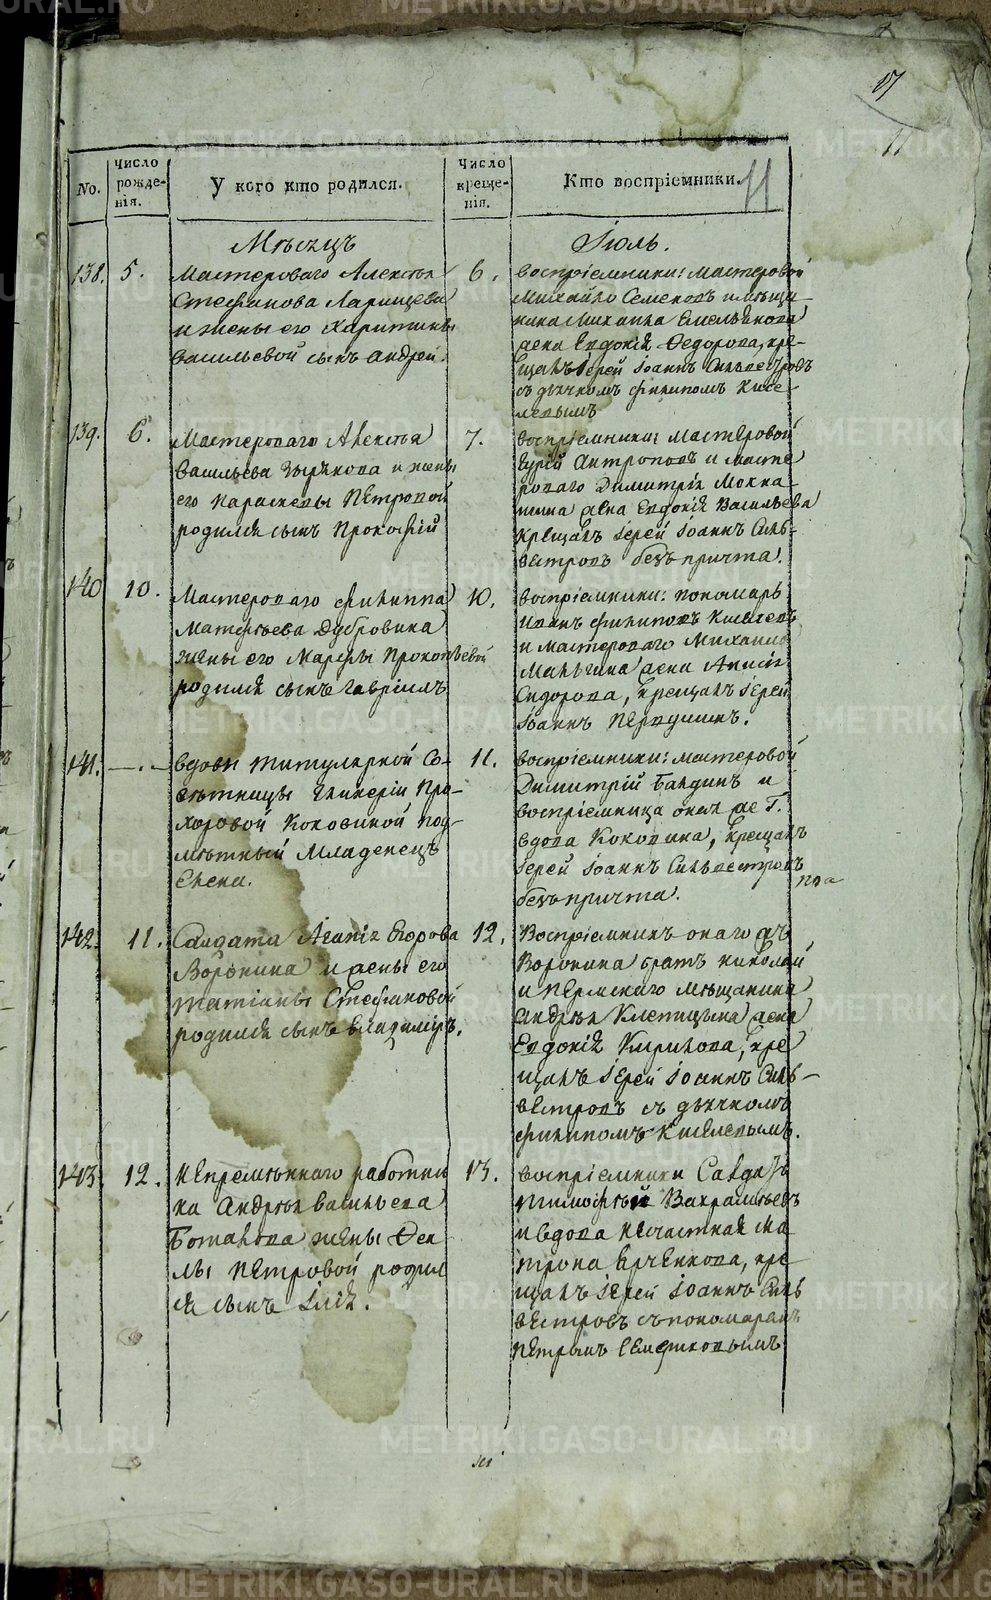 17
11
No.
Число рожде-нія.
У кого кто родился.
Число креще-нія.
Кто воспріемники.
11
Мѣсяцъ
Іюль.
138.
5.
Мастероваго Алексѣя
Стефанова Ларищева
и жены его Харитины
Васильевой сынъ Андрей.
6.
Воспріемники: мастеровой
Михайло Семеновъ и мѣща-
нина Михаила Емельянова
жена Евдокія Федорова, кре-
щалъ Іерей Іоаннъ Сильвестровъ
съ дьячкомъ Филипомъ Кисе-
левымъ
139.
6.
Мастероваго Алексѣя
Васильева и жены
его Параскевы Петровой
родился сынъ Прокофій
7.
Воспріемники: Мастеровой
Гурій Антроповъ и масте
роваго Димитрія Мокла-
жена Евдокія Васильева
крещалъ Іерей Іоаннъ Силь-
вестровъ безъ причта.
140
10.
Мастероваго Филиппа
Матфѣева Дубровина
жены его Марфы Прокопьевой
родился сынъ Гавріилъ
10.
Воспріемники: пономарь
Иванъ Филиповъ Киселевъ
и мастероваго Михаила
Малыгина жена Анисія
Сидорова, крещалъ Іерей
Іоаннъ
141.
—.—
Вдовы Титулярной Со-
вѣтницы Гликеріи Про-
хоровой Коковиной под-
мѣтный младенецъ
Елена.
11.
Воспріемники: мастеровой
Димитрій Баldинъ и
воспріемница оная же Г.
вдова Коковина, крещалъ
Іерей Іоаннъ Сильвестровъ
безъ причта.
142.
11.
Салдата Агапія Егорова
Воронина и жены его
Татіаны Стефановой
родился сынъ Владимиръ.
12.
Воспріемникъ онаго жъ
Воронина братъ Николай
и Пермскаго мѣщанина
Андрея Клепицына жена
Евдокія Кирилова, кре
щалъ Іерей Іоаннъ Силь-
вестровъ съ дьячкомъ
Филипомъ Киселевымъ.
143.
12.
Непремѣннаго работни
ка Андрея Васильева
Боталова жены Фек
лы Петровой родил
ся сынъ Ілія.
13.
Воспріемники Салдатъ
Тимофѣй Вахрамѣевъ
и вдова нѣсчастная Ма
трона кре
щалъ Іерей Іоаннъ Силь
вестровъ съ пономаремъ
Петрымъ
METRIKI.GASO-URAL.RU